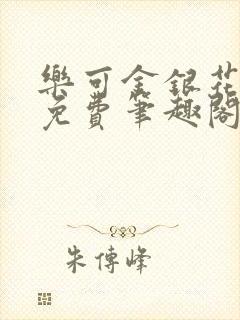 樂可金銀花
免費筆趣閣
朱傳峰